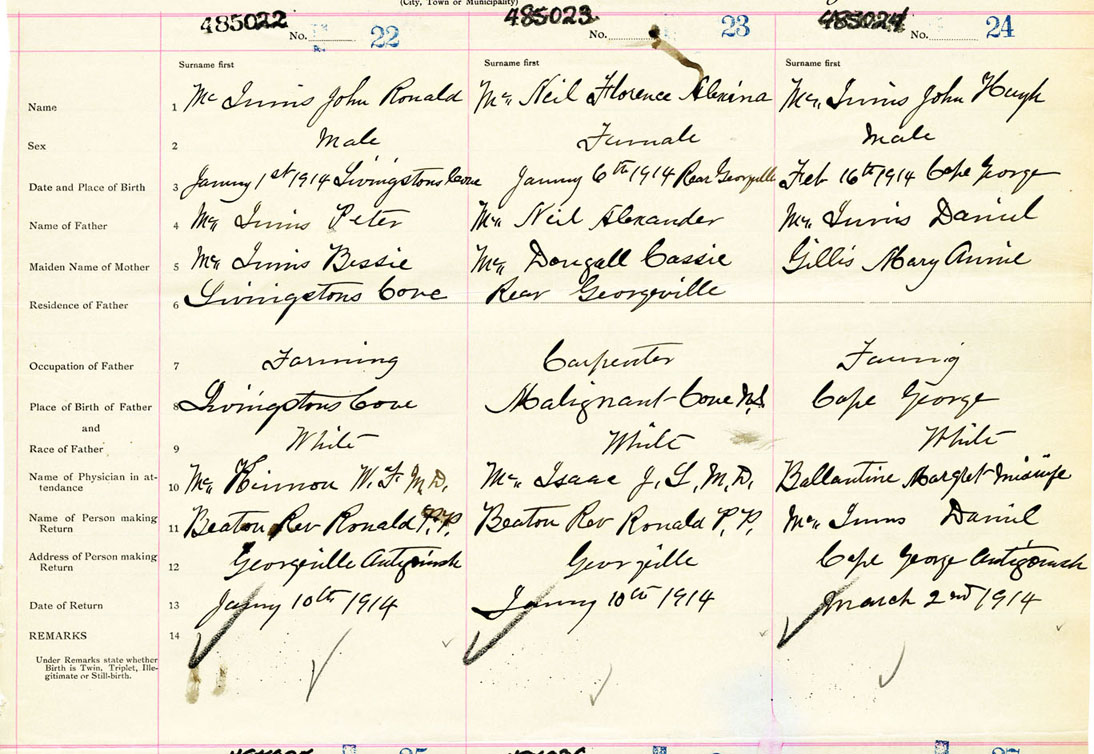 (City, Town or Municipality)
485022 No. 22 485023 No. 23 485024 No. 24
Surname first Surname first Surname first
Name 1 Mc Innis John Ronald Mc Neil Florence Alexina Mc Innis John Hugh
Sex 2 Male Female Male
Date and Place of Birth 3 January 1st 1914 Livingstons Cove January 6th 1914 Rear Georgeville Feb 16th 1914 Cape George
Name of Father 4 Mc Innis Peter Mc Neil Alexander Mc Innis Daniel
Maiden Name of Mother 5 Mc Innis Bessie Mc Dougall Cassie Gillis Mary Annie
Residence of Father 6 Livingstons Cove Rear Georgeville
Occupation of Father 7 Farming Carpenter Farming
Place of Birth of Father 8 Livingstons Cove Malignant Cove N.S. Cape George
and
Race of Father 9 White White White
Name of Physician in at-
tendance 10 Mc Kinnon W. F. M.D. Mc Isaac J. L. M.D. Ballantine Margret Midwife
Name of Person making
Return 11 Beaton Rev Ronald P.P. Beaton Rev Ronald P.P. Mc Innis Daniel
Address of Person making
Return 12 Georgeville Antigonish Georgeville Cape George Antigonish
Date of Return 13 January 10th 1914 January 10th 1914 March 2nd 1914
REMARKS 14
Under Remarks state whether
Birth is Twin, Triplet, Ille-
gitimate or Still-birth.